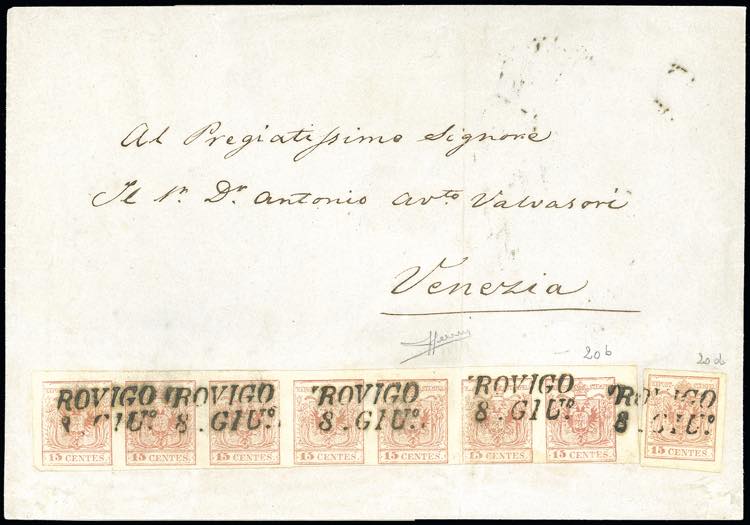 Al Pregiatissimo Signore
Il Sr. Dr. Antonio Avto Valvasori
Venezia
20b
20d
ROVIGO ROVIGO ROVIGO ROVIGO ROVIGO
. GIUº. 8 . GIUº. 8 . GIUº. 8 . GIUº. 8 . GIUº.
15 CENTES. 15 CENTES. 15 CENTES. 15 CENTES. 15 CENTES. 15 CENTES. 15 CENTES. 15 CENTES.